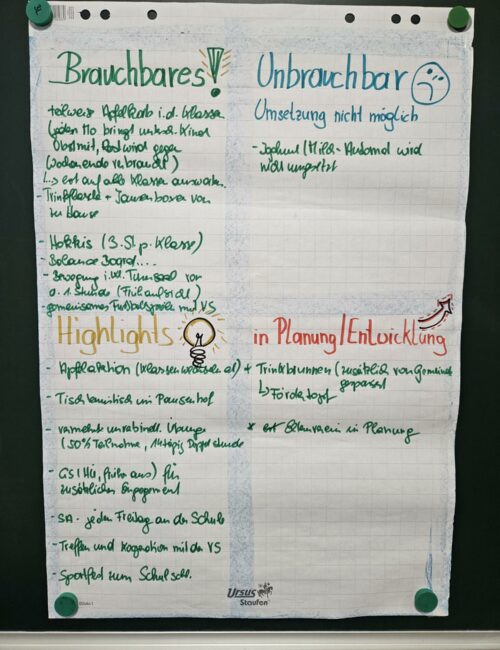 Brauchbares!
teilweise Apfelkorb i.d. Klasse
(jeden Mo bringt unterschl. Kind
Obst mit, Rest wird gegen
Wochenende verbraucht)
↳ erst auf alle Klassen ausweiten.
- Trinkflasche + Jausenboxen von
zu Hause
- Hokkis (3. St. p. Klasse)
- Balance Board....
- Bewegung i. Turnsaal vor
d. 1. Stunde (Frühaufsicht)
- gemeinsames Fußballspielen mit VS
Unbrauchbar
Umsetzung nicht möglich
- Joghurt/Milch-Automat wird
nicht umgesetzt
Highlights
- Apfelaktion (Klassenweise)
- Tischtennistisch im Pausenhof
- vermehrt unverbindl. Übung
(50% Teilnahme, 14tägig Doppelstunde
- für
zusätzliches Engagement
- SA - jeden Freitag an der Schule
- Treffen und Kooperation mit der VS
- Sportfest zum Schulschl.
in Planung/Entwicklung
+ Trinkbrunnen (zusätzlich von Gemeinde
gesponsert
↳ Fördertopf
* erst Elternverein in Planung
Ursus
Staufen